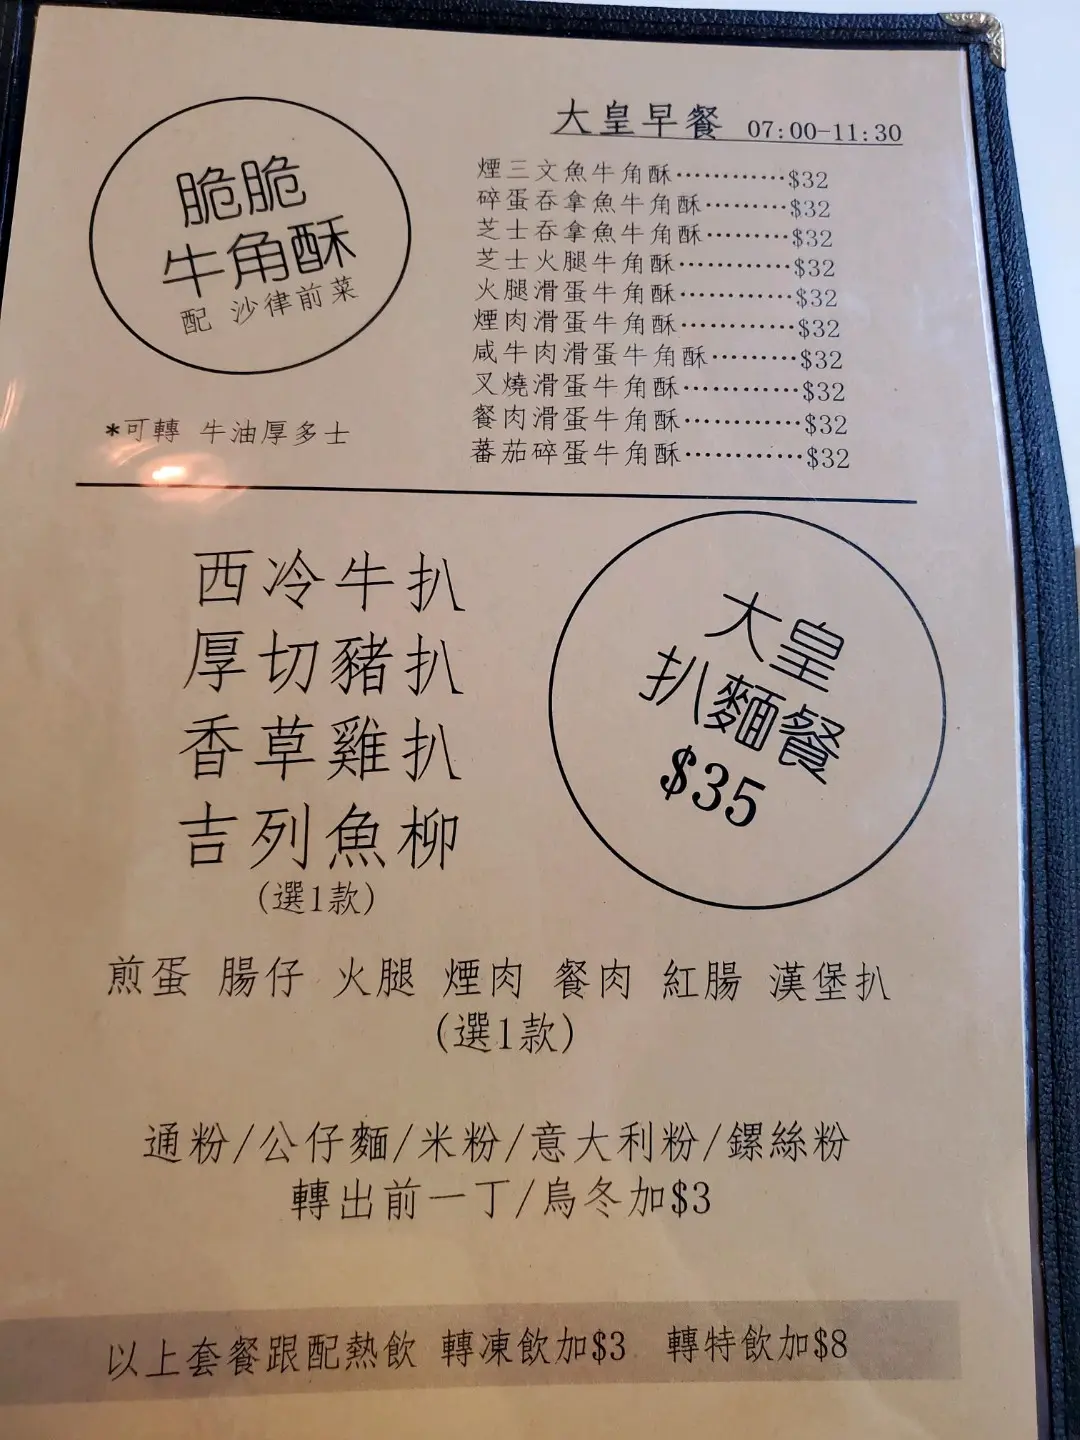 脆脆
牛角酥
配 沙律前菜
*可轉 牛油厚多士
大皇早餐 07:00-11:30
煙三文魚牛角酥…………$32
碎蛋吞拿魚牛角酥………$32
芝士吞拿魚牛角酥………$32
芝士火腿牛角酥…………$32
火腿滑蛋牛角酥…………$32
煙肉滑蛋牛角酥…………$32
咸牛肉滑蛋牛角酥………$32
叉燒滑蛋牛角酥…………$32
餐肉滑蛋牛角酥…………$32
蕃茄碎蛋牛角酥…………$32
西冷牛扒
厚切豬扒
香草雞扒
吉列魚柳
(選1款)
大皇
扒麵餐
$35
煎蛋 腸仔 火腿 煙肉 餐肉 紅腸 漢堡扒
(選1款)
通粉/公仔麵/米粉/意大利粉/鏍絲粉
轉出前一丁/烏冬加$3
以上套餐跟配熱飲 轉凍飲加$3 轉特飲加$8